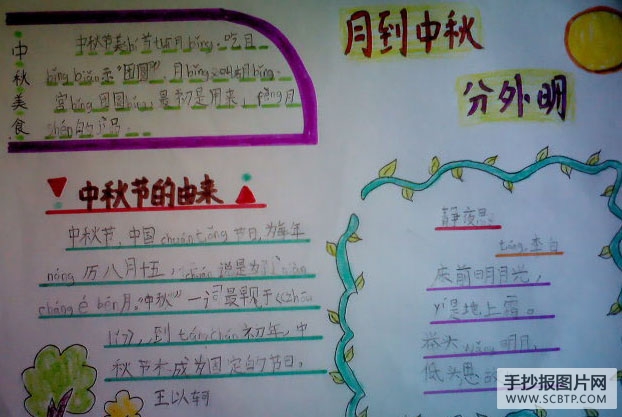 月到中秋
分外明
中秋美食
中秋节美 首 月bǐng 吃月
bǐng "团圆" 月bǐng
宫bǐng 团圆bǐng 最初是用来
的
中秋节的由来
中秋节,中国chuán tǒng节日,为每年
nóng历八月十五, 说是为了
cháng é bēn月."中秋"一词最早见于《zhōu
lǐ》,到táng cháo初年,中
秋节才成为固定的节日.
王以轲
静夜思
táng 李白
床前明月光,
yí是地上霜。
举头 明月,
低头思
手抄报图片网
WWW.SCBTP.COM